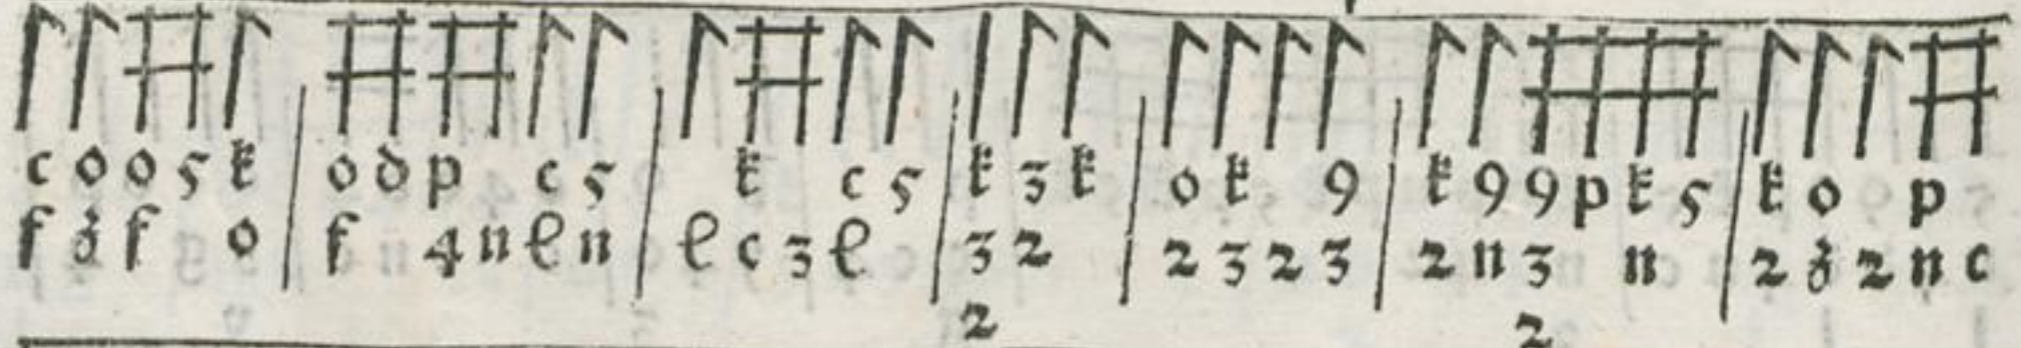 c o o 5 k | o d p c 5 | k c 5 | k 3 k | o k 9 | k 9 9 p k 5 | k o p
f z f o | f 4 n e n | e c 3 e | 3 2 | 2 3 2 3 | 2 n 3 n | 2 z 2 n c
2 2